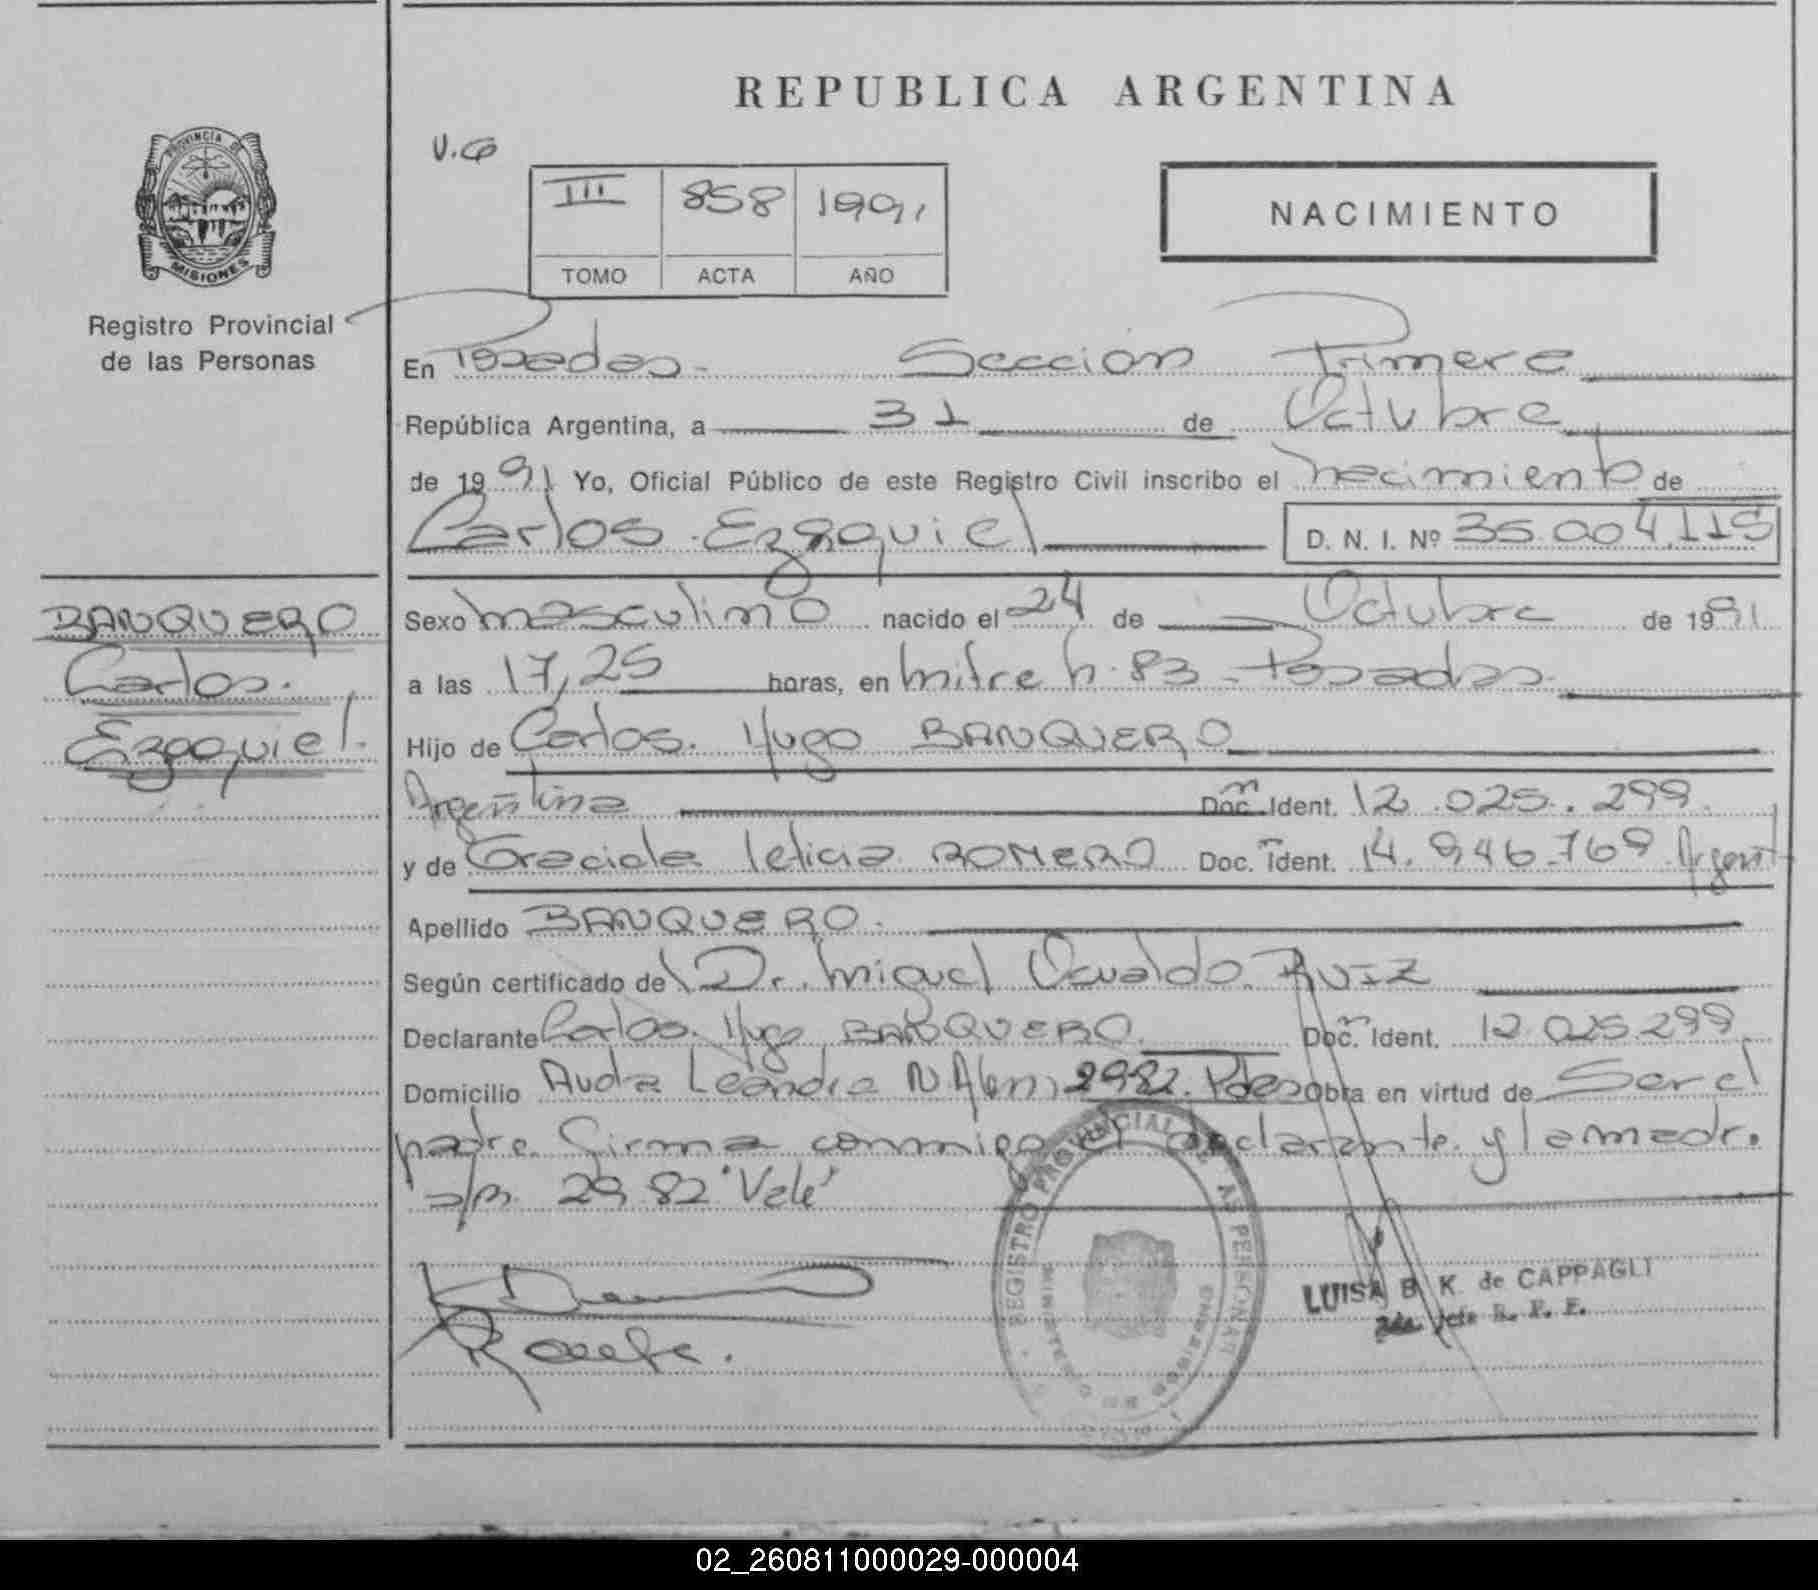 REPUBLICA ARGENTINA
PROVINCIA DE
MISIONES
Registro Provincial
de las Personas
III 858 1991
TOMO ACTA AÑO
NACIMIENTO
En Posadas - Seccion Primera
República Argentina, a 31 de Octubre
de 1991 Yo, Oficial Público de este Registro Civil inscribo el nacimiento de
Carlos Ezequiel D. N. I. Nº 35.004.115
BANQUERO
Carlos.
Ezequiel.
Sexo masculino nacido el 24 de Octubre de 1991
a las 17,25 horas, en Mitre h. 83 - Posadas.
Hijo de Carlos. Hugo BANQUERO
Argentina Doc. Ident. 12.025.299.
y de Graciela leticia ROMERO Doc. Ident. 14.946.769 Argent
Apellido BANQUERO.
Según certificado de Dr. Miguel Osvaldo RUIZ
Declarante Carlos. Hugo BANQUERO. Doc. Ident. 12.025.299
Domicilio Avda Leandro N. Alem 2982. Pdas Obra en virtud de Ser el
padre. firma conmigo el declarante. y la madre.
s/r. 29.82 "Vale"
REGISTRO PROVINCIAL DE LAS PERSONAS
LUISA B. K. de CAPPAGLI
2da jefe R. P. P.
02_260811000029-000004